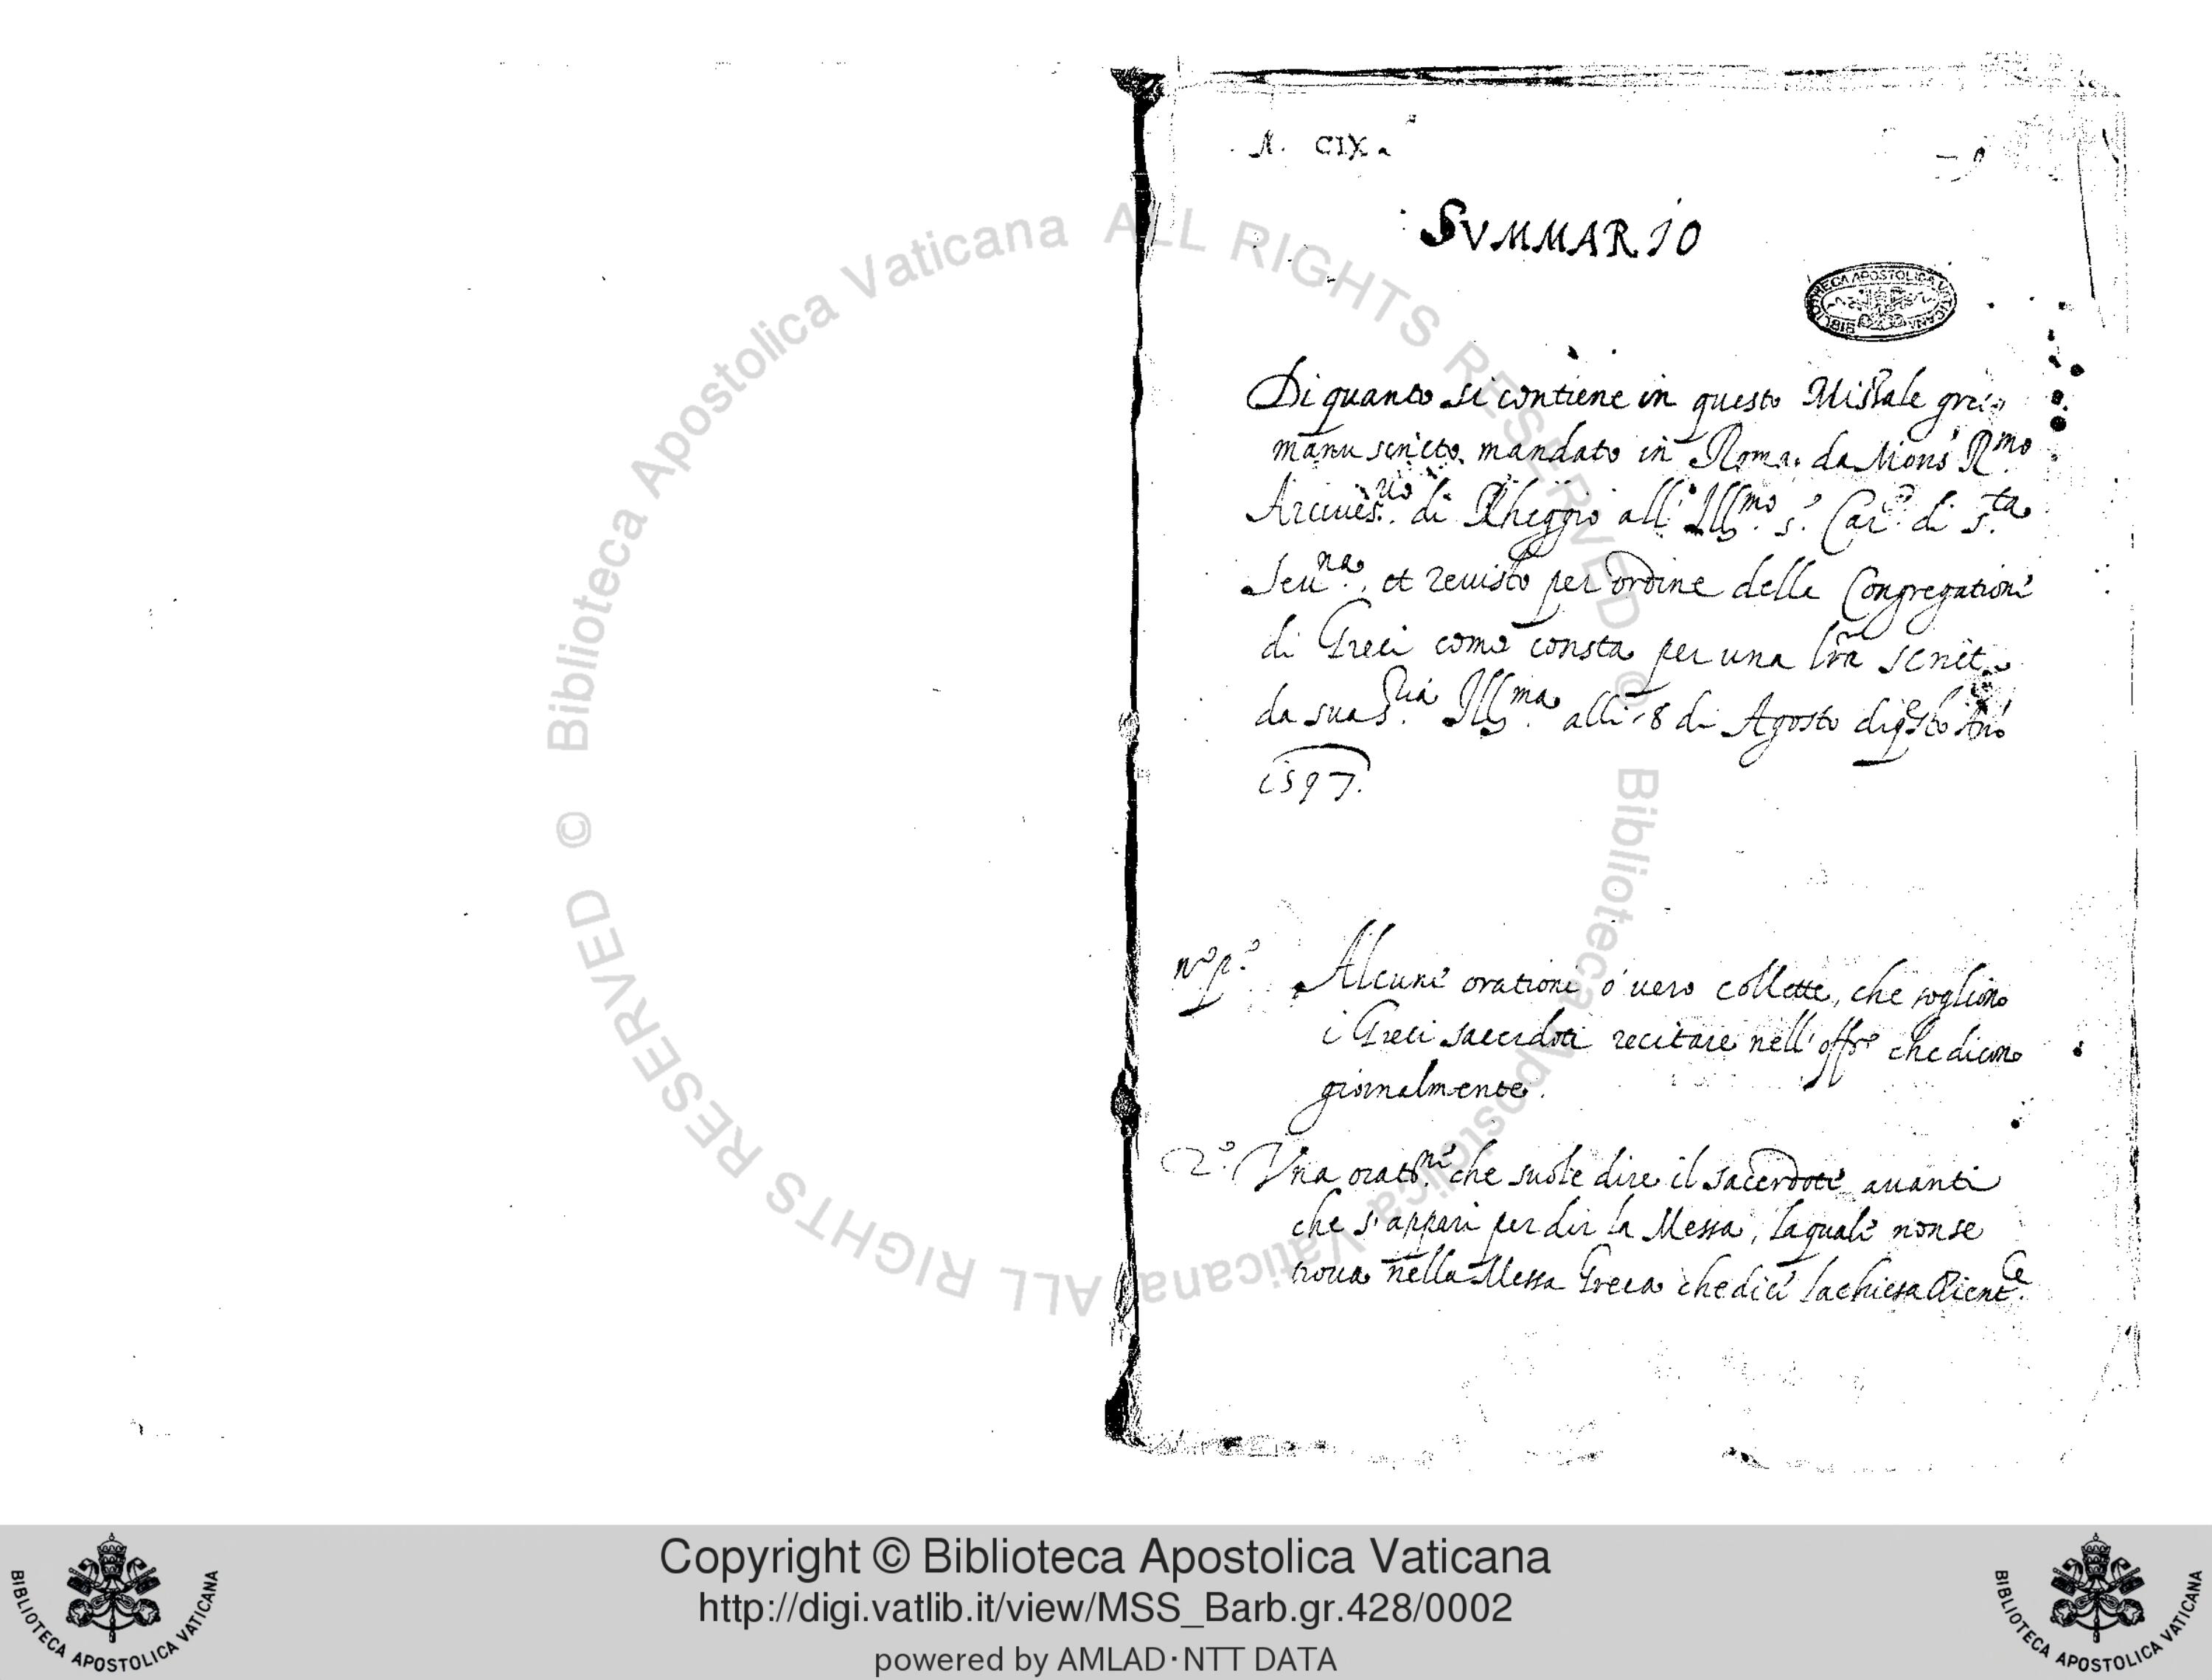 N. CIX.
SVMMARIO
Di quanto si contiene in questo Missale greco
manuscritto mandato in Roma da Mons.r R.mo
Arciues.uo di Rheggio all' Ill.mo s.r Car. di S.ta
Seu.na et reuisto per ordine della Congregatione
di Greci come consta per una lra scritta
da sua S.ria Ill.ma alli 18 di Agosto di qsto Ano
1597.
n.o p.o Alcune orationi o uero collette, che sogliono
i Greci sacerdoti recitare nell' offo che dicono
giornalmente.
2.o Vna orat.ne che suole dire il sacerdote auanti
che s'appari per dir la Messa, laquale non se
troua nella Messa Greca che dice la chiesa Orient.le
BIBLIOTECA APOSTOLICA VATICANA
© Biblioteca Apostolica Vaticana ALL RIGHTS RESERVED
© Biblioteca Apostolica Vaticana ALL RIGHTS RESERVED
Copyright © Biblioteca Apostolica Vaticana
http://digi.vatlib.it/view/MSS_Barb.gr.428/0002
powered by AMLAD·NTT DATA
BIBLIOTECA APOSTOLICA VATICANA
BIBLIOTECA APOSTOLICA VATICANA